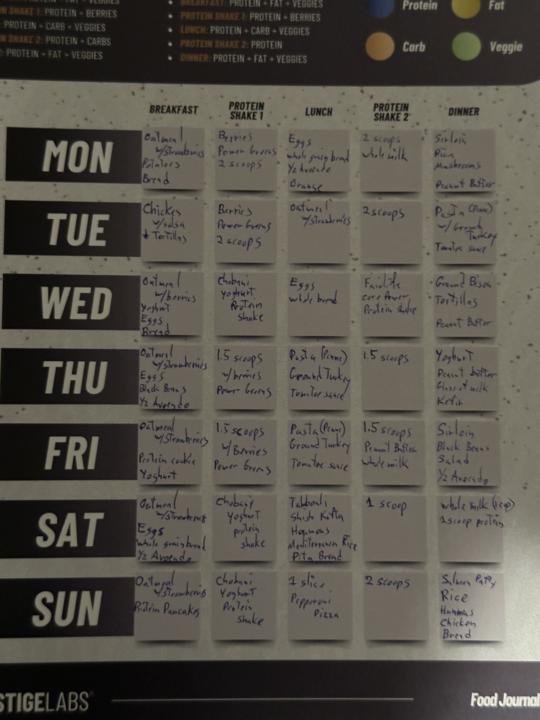 PROTEIN + FAT + VEGGIES
SHAKE 1: PROTEIN + BERRIES
PROTEIN + CARB + VEGGIES
SHAKE 2: PROTEIN + CARBS
PROTEIN + FAT + VEGGIES
BREAKFAST: PROTEIN + FAT + VEGGIES
PROTEIN SHAKE 1: PROTEIN + BERRIES
LUNCH: PROTEIN + CARB + VEGGIES
PROTEIN SHAKE 2: PROTEIN
DINNER: PROTEIN + FAT + VEGGIES
Protein
Fat
Carb
Veggie
BREAKFAST
PROTEIN
SHAKE 1
LUNCH
PROTEIN
SHAKE 2
DINNER
MON
Oatmeal
w/strawberries
Potatoes
Bread
Berries
Power Greens
2 scoops
Eggs
whole grain bread
1/2 Avocado
Orange
2 scoops
whole milk
Sirloin
Rice
Mushrooms
Peanut Butter
TUE
Chicken
w/salsa
+ Tortillas
Berries
Power Greens
2 scoops
Oatmeal
w/strawberries
2 scoops
Pasta (Penne)
w/ Ground
Turkey
Tomato sauce
WED
Oatmeal
w/berries
Yoghurt
Eggs
Bread
Chobani
Yoghurt
Protein
shake
Eggs
whole bread
Fairlife
core Power
Protein shake
Ground Bison
Tortillas
Peanut Butter
THU
Oatmeal
w/strawberries
Eggs
Black Beans
1/2 Avocado
1.5 scoops
w/berries
Power Greens
Pasta (Penne)
Ground Turkey
Tomato sauce
1.5 scoops
Yoghurt
Peanut butter
Glass of milk
Kefir
FRI
Oatmeal
w/strawberries
Protein cookie
Yoghurt
1.5 scoops
w/Berries
Power Greens
Pasta (Penne)
Ground Turkey
Tomatoe sauce
1.5 scoops
Peanut Butter
whole milk
Sirloin
Black Beans
Salad
1/2 Avocado
SAT
Oatmeal
w/strawberries
Eggs
whole grain bread
1/2 Avocado
Chobani
Yoghurt
protein
shake
Tabbouli
Shish Kafta
Hummus
Mediterranean Rice
Pita Bread
1 scoop
whole milk (1cup)
1 scoop protein
SUN
Oatmeal
w/strawberries
Protein Pancakes
Chobani
Yoghurt
Protein
shake
1 slice
Pepperoni
Pizza
2 scoops
Salmon Patty
Rice
Hummus
Chicken
Bread
STIGELABS
Food Journal